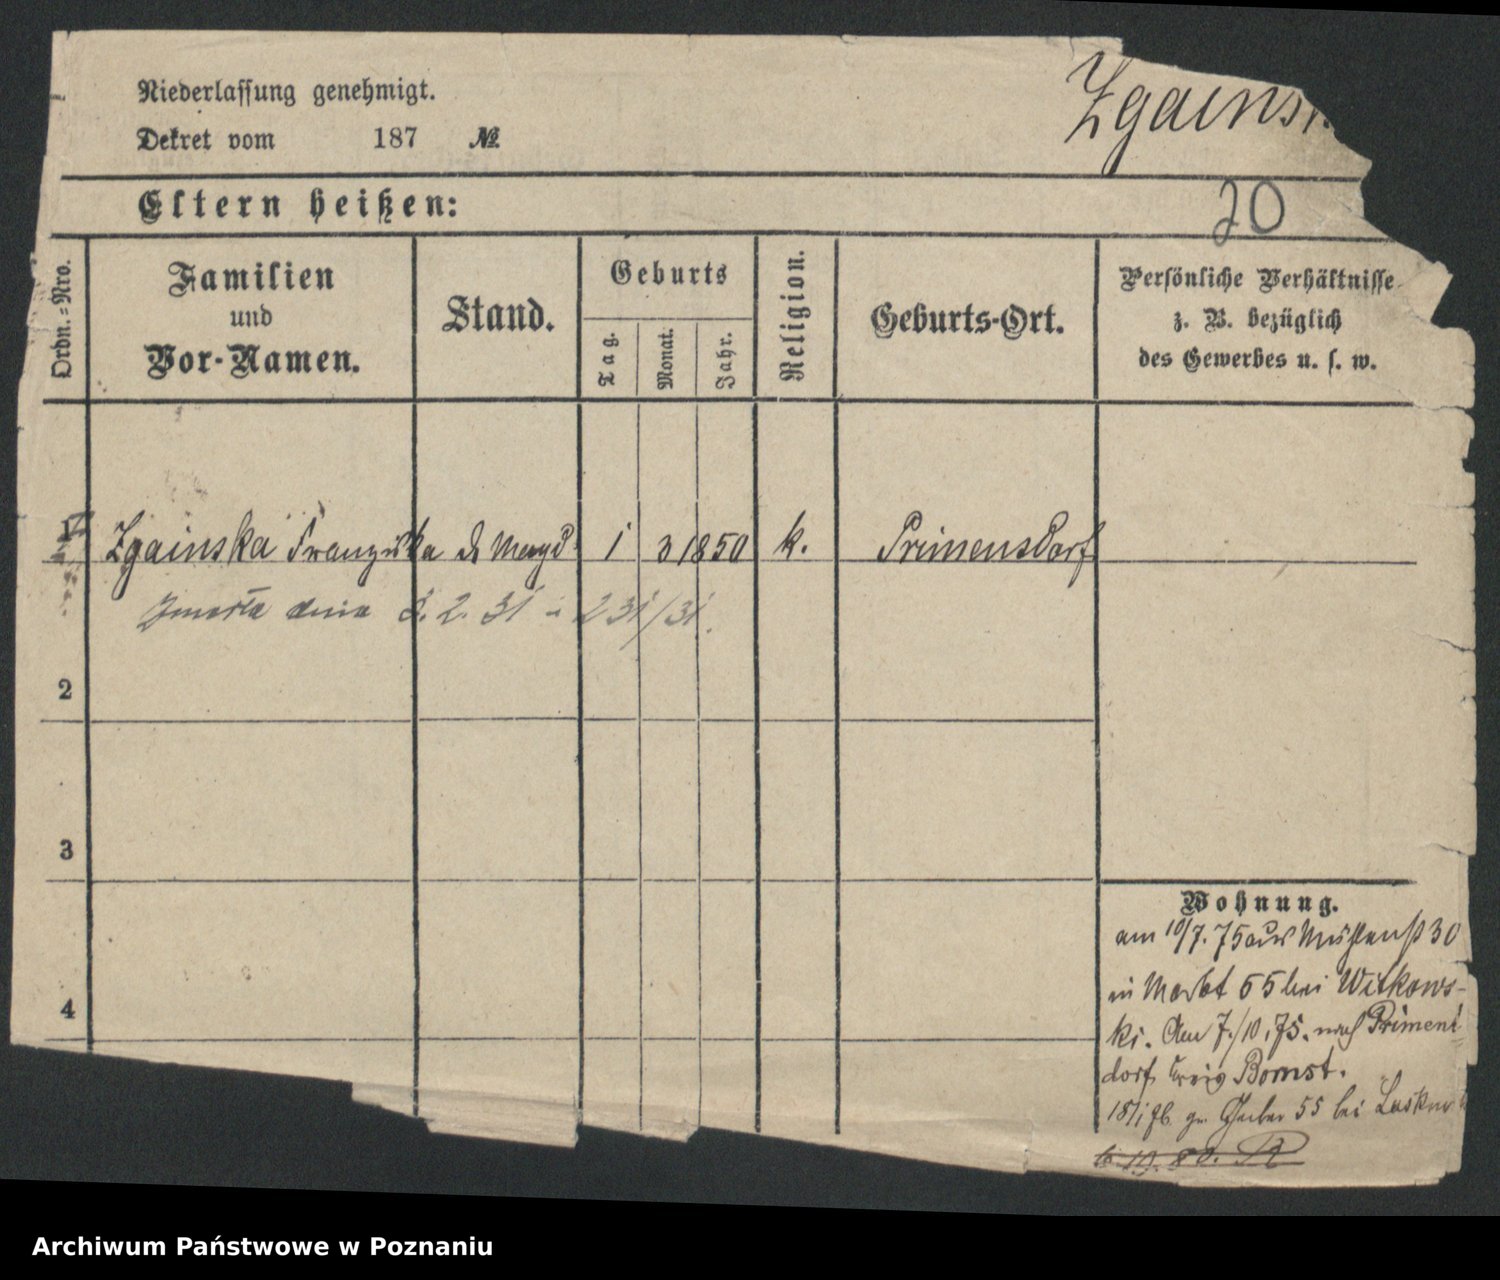 Niederlassung genehmigt.
Zgains
Dekret vom 187 №
Eltern heißen:
20
Ordn.=Nro.
Familien
und
Vor-Namen.
Stand.
Geburts
Tag.
Monat.
Jahr.
Religion.
Geburts-Ort.
Persönliche Verhältnisse
z. B. bezüglich
des Gewerbes u. s. w.
1 Zgainska Franziska d. Magd 1 3 1850 k. Primensdorf
Zmarła dnia 8. 2. 31 231/31.
2
3
4
Wohnung.
am 10/7. 75 aus 30
in Markt 55 bei Witkows-
ki. Am 7./10. 75. nach Priment
dorf Kreis Bomst.
18/1 76. 55 bei
Archiwum Państwowe w Poznaniu